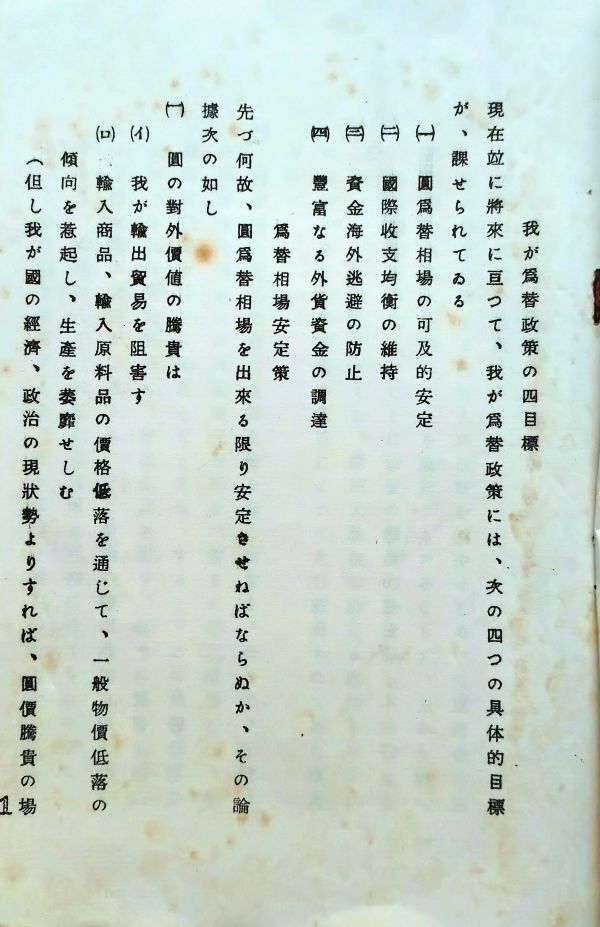 我が爲替政策の四目標
現在竝に將來に亘つて、我が爲替政策には、次の四つの具体的目標
が、課せられてゐる
㈠ 圓爲替相場の可及的安定
㈡ 國際收支均衡の維持
㈢ 資金海外逃避の防止
㈣ 豐富なる外貨資金の調達
爲替相場安定策
先づ何故、圓爲替相場を出來る限り安定させねばならぬか、その論
據次の如し
㈠ 圓の對外價値の騰貴は
(イ) 我が輸出貿易を阻害す
(ロ) 輸入商品、輸入原料品の價格低落を通じて、一般物價低落の
傾向を惹起し、生產を萎靡せしむ
(但し我が國の經濟、政治の現狀勢よりすれば、圓價騰貴の場
1